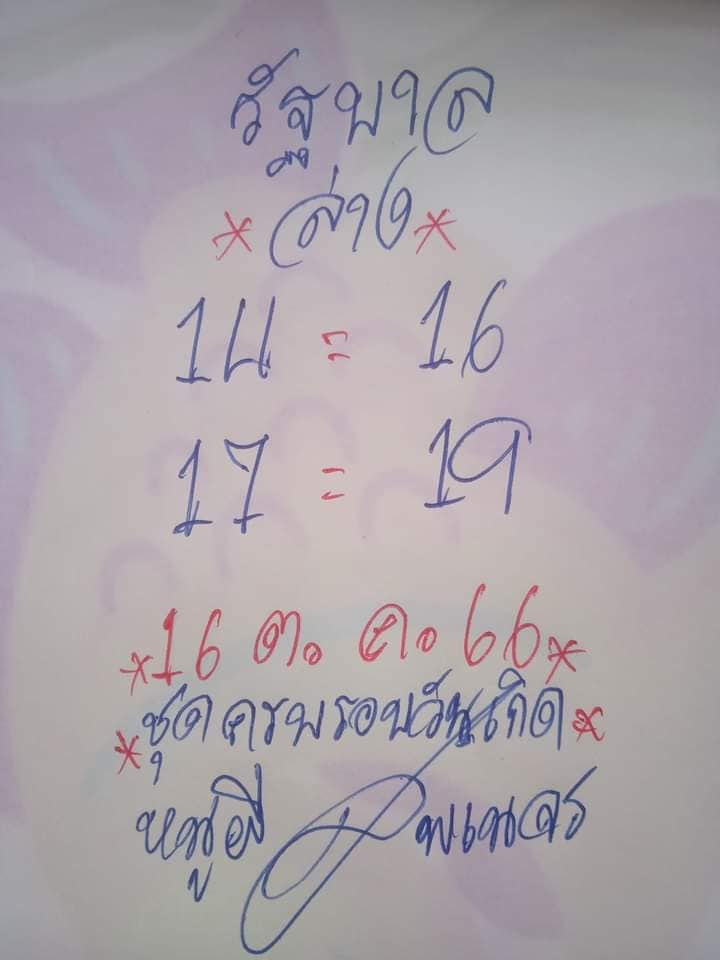 รัฐบาล
* ล่าง *
14 = 16
17 = 19
*16 ต. ค. 66*
*ชุดครบรอบวันเกิด*
หมูมี พเนจร